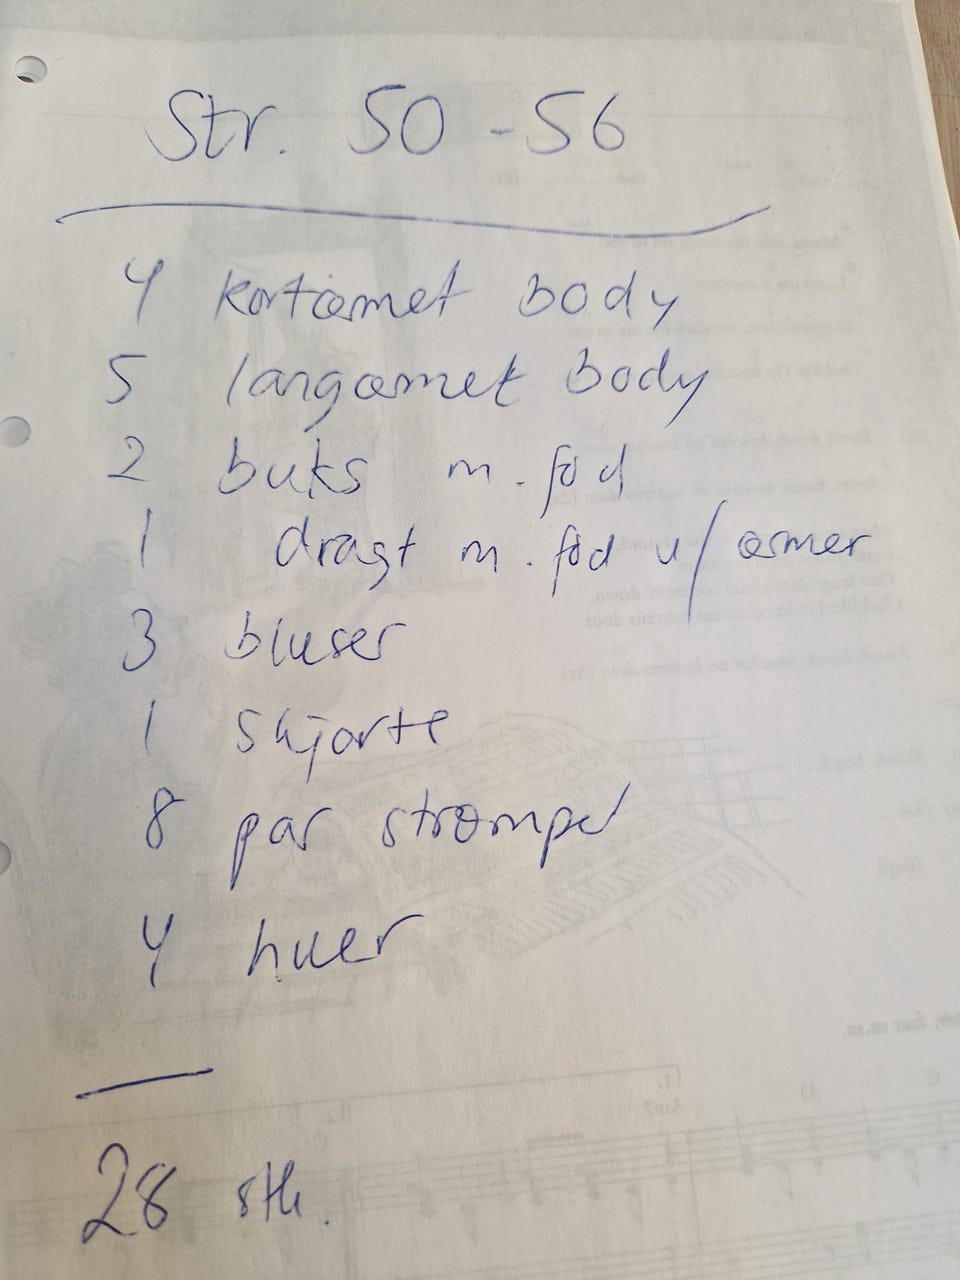 Str. 50 - 56
4 kortæmet body
5 langæmet body
2 buks m. fod
1 dragt m. fod u/ ærmer
3 bluser
1 skjorte
8 par strømper
4 huer
28 stk.